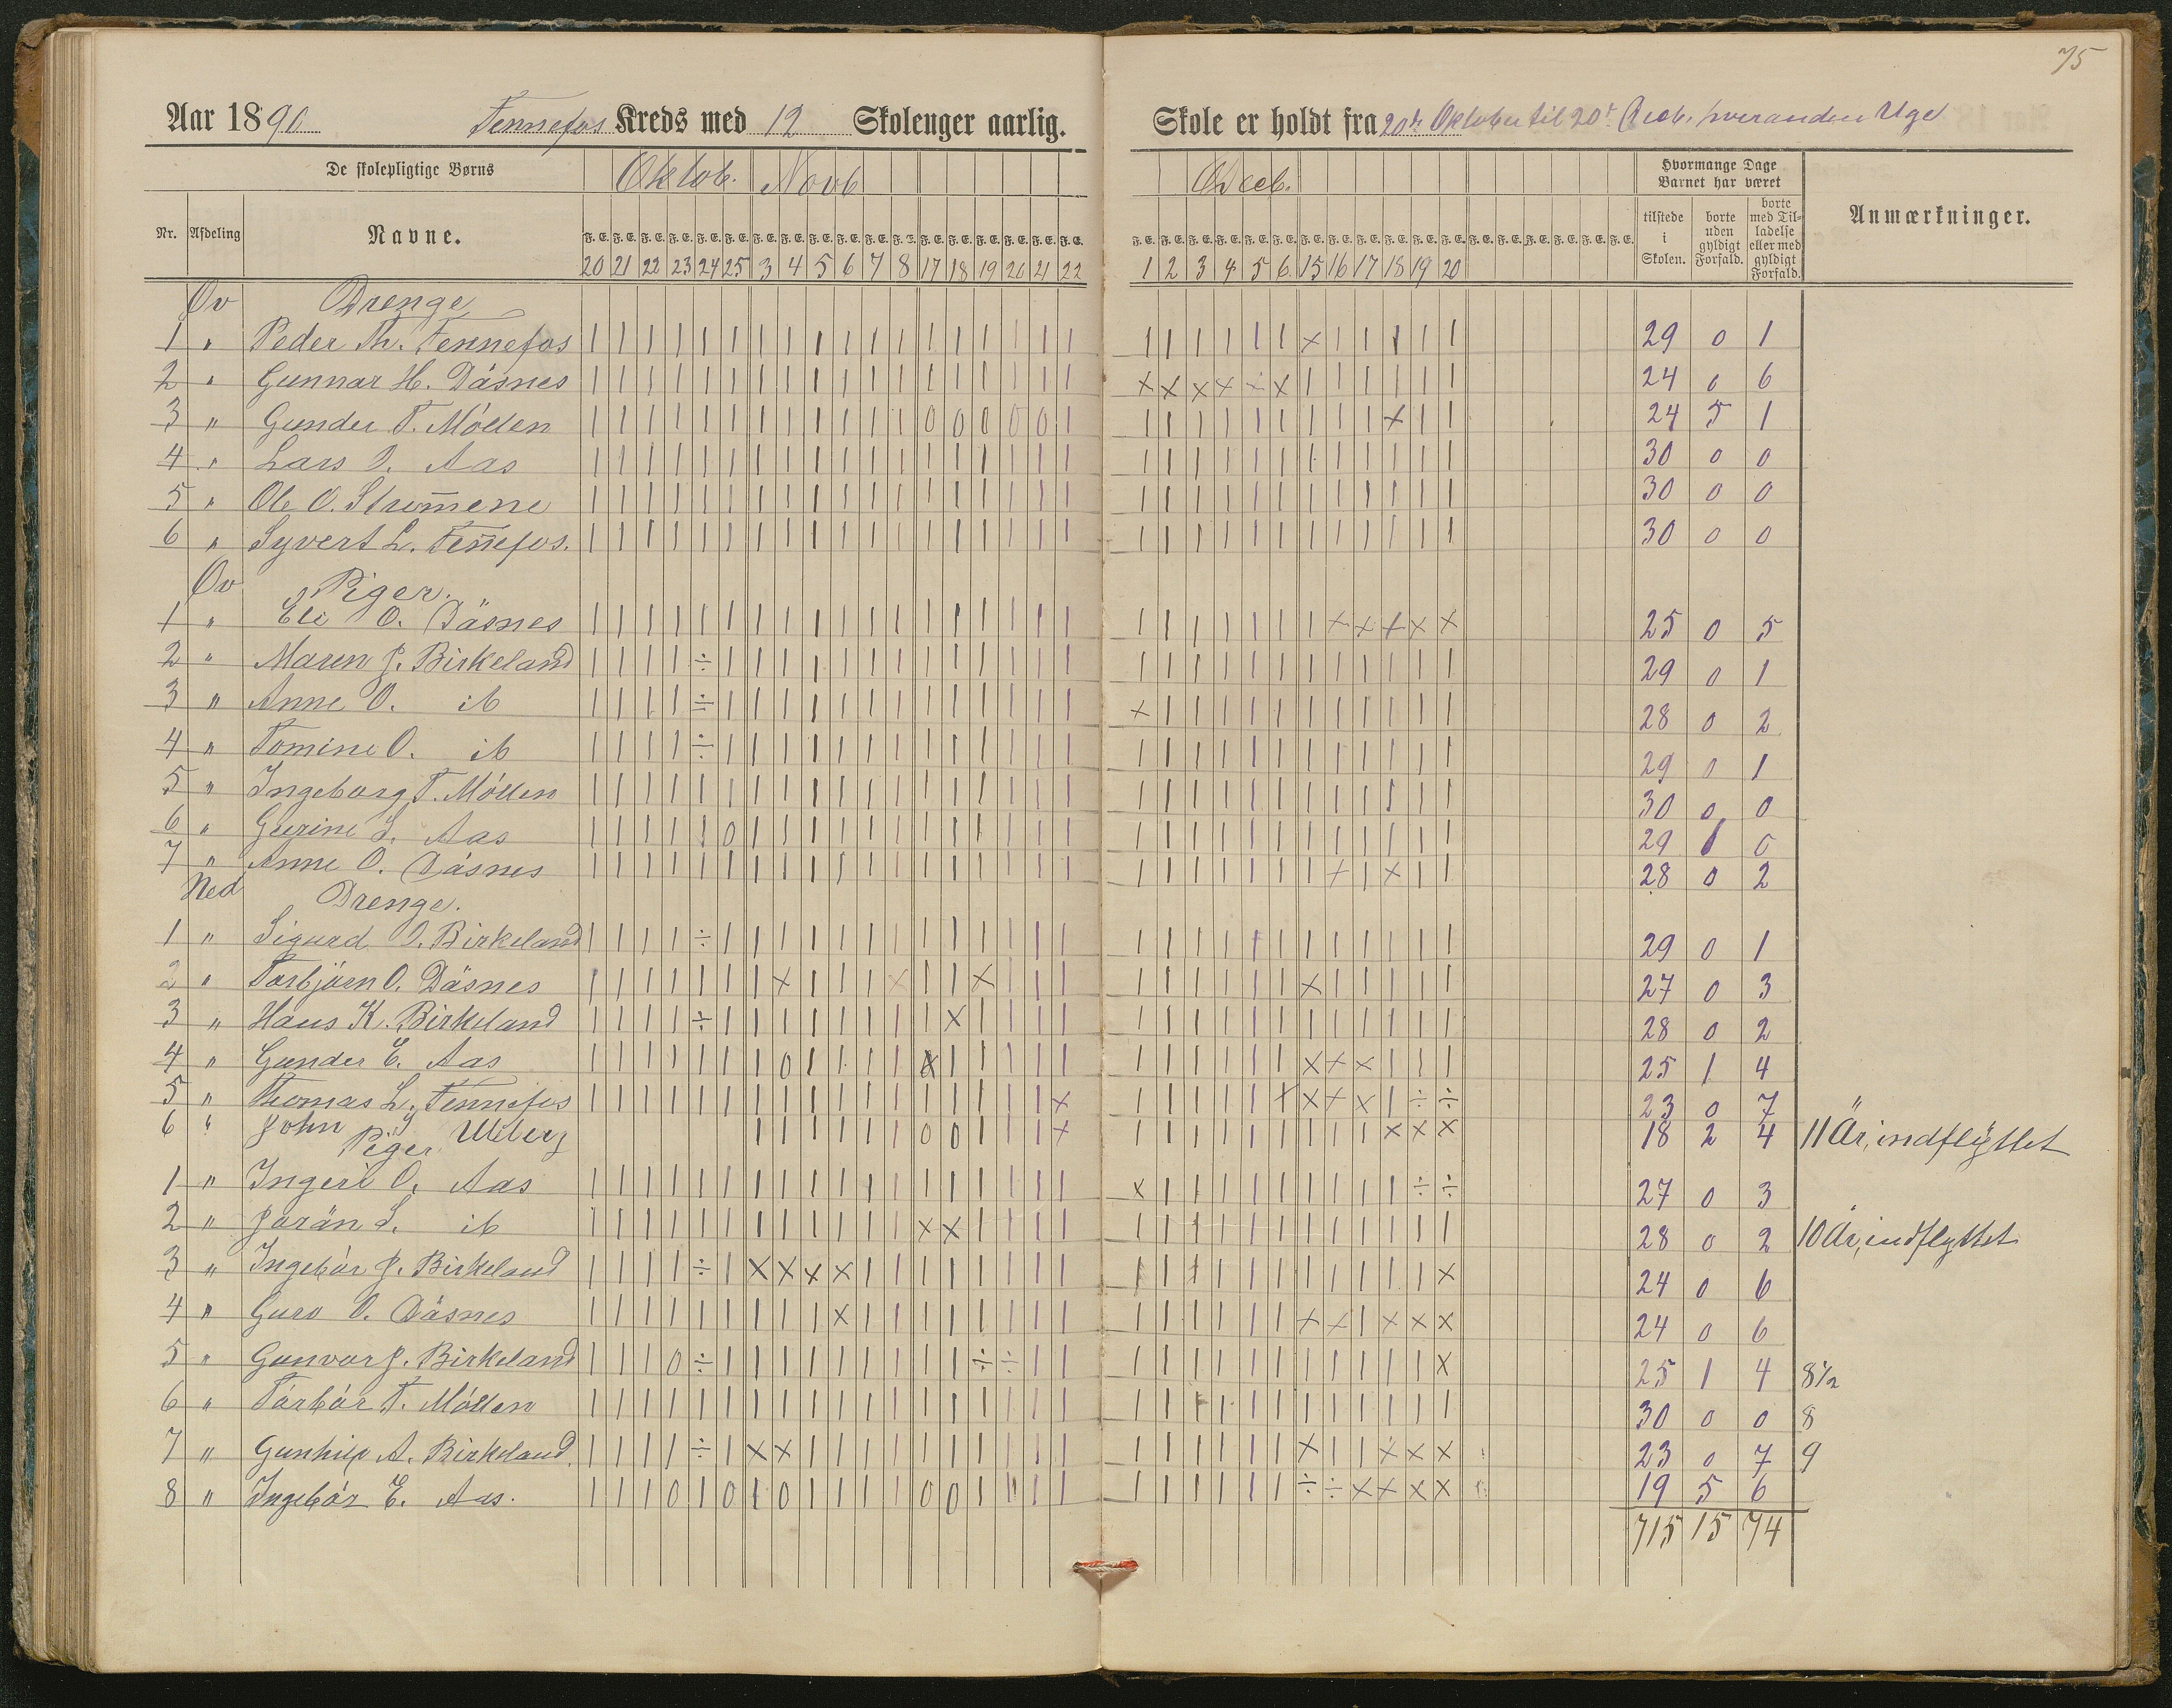 75
Aar 1890 Fennefos Kreds med 12 Skoleuger aarlig. Skole er holdt fra 20de Oktober til 20de Decb. hveranden Uge
De skolepligtige Børns Oktob. Novb Decb. Hvormange Dage Barnet har været
Nr. Afdeling Navne. F. E. F. E. F. E. F. E. F. E. F. E. F. E. F. E. F. E. F. E. F. E. F. E. F. E. F. E. F. E. F. E. F. E. F. E. tilstede i Skolen. borte uden gyldigt Forfald. borte med Tilladelse eller med gyldigt Forfald. Anmærkninger.
20 21 22 23 24 25 3 4 5 6 7 8 17 18 19 20 21 22 1 2 3 4 5 6 15 16 17 18 19 20
Ov Drenge
1 " Peder Th. Fennefos | | | | | | | | | | | | | | | | | | | | | | | | x | | | | | 29 0 1
2 " Gunnar H. Dåsnes | | | | | | | | | | | | | | | | | | x x x x ÷ x | | | | | | 24 0 6
3 " Gunder T. Möllen | | | | | | | | | | | | 0 0 0 0 0 | | | | | | | | | | x | | 24 5 1
4 " Lars O. Aas | | | | | | | | | | | | | | | | | | | | | | | | | | | | | | 30 0 0
5 " Ole O. Strom̅ene | | | | | | | | | | | | | | | | | | | | | | | | | | | | | | 30 0 0
6 " Syvert L. Fen̅efos. | | | | | | | | | | | | | | | | | | | | | | | | | | | | | | 30 0 0
Ov Piger.
1 " Eli O. Dåsnes | | | | | | | | | | | | | | | | | | | | | | | | | x x x x x 25 0 5
2 " Maren J. Birkeland | | | | ÷ | | | | | | | | | | | | | | | | | | | | | | | | | 29 0 1
3 " Anne O. ib | | | | ÷ | | | | | | | | | | | | | x | | | | | | | | | | | 28 0 2
4 " Tomine O. ib | | | | ÷ | | | | | | | | | | | | | | | | | | | | | | | | | 29 0 1
5 " Ingeborg T. Möllen | | | | | | | | | | | | | | | | | | | | | | | | | | | | | | 30 0 0
6 " Gurine L. Aas | | | | | 0 | | | | | | | | | | | | | | | | | | | | | | | | 29 1 0
7 " Anne O. Dåsnes | | | | | | | | | | | | | | | | | | | | | | | | | x | x | | 28 0 2
Ned Drenge.
1 " Sigurd O. Birkeland | | | | ÷ | | | | | | | | | | | | | | | | | | | | | | | | | 29 0 1
2 " Torbjörn O. Dåsnes | | | | | | | x | | | x | | x | | | | | | | | | x | | | | | 27 0 3
3 " Hans K. Birkeland | | | | ÷ | | | | | | | | x | | | | | | | | | | | | | | | | 28 0 2
4 " Gunder E. Aas | | | | | | | 0 | | | | x | | | | | | | | | | | x x x | | | 25 1 4
5 " Thomas L. Fennefos | | | | | | | | | | | | | | | | | x | | | | | x x x x | ÷ ÷ 23 0 7
6 " John G Ulberg | | | | | | 0 0 | | | x | | | | | | | | | x x x 18 2 4 11 År, indflyttet
Piger
1 " Ingeri O. Aas | | | | | | | | | | | | | | | | | | x | | | | | | | | | ÷ ÷ 27 0 3
2 " Jorän L. ib | | | | | | | | | | | | x x | | | | | | | | | | | | | | | | 28 0 2 10 År, indflyttet
3 " Ingebör J. Birkeland | | | | ÷ | x x x x | | | | | | | | | | | | | | | | | | | x 24 0 6
4 " Guro O. Dåsnes | | | | | | | | | x | | | | | | | | | | | | | | x x | x x x 24 0 6
5 " Gunvor J. Birkeland | | | 0 ÷ | | | | | | | | | ÷ ÷ | | | | | | | | | | | | | x 25 1 4 8½
6 " Tórbór T. Möllen | | | | | | | | | | | | | | | | | | | | | | | | | | | | | | 30 0 0 8
7 " Gunhild A. Birkeland | | | | ÷ | x x | | | | | | | | | | | | | | | | x | | x x x 23 0 7 9
8 " Ingebör E. Aas. | | | 0 | 0 | 0 | | | | 0 0 | | | | | | | | | | ÷ ÷ x x x x 19 5 6
715 15 74